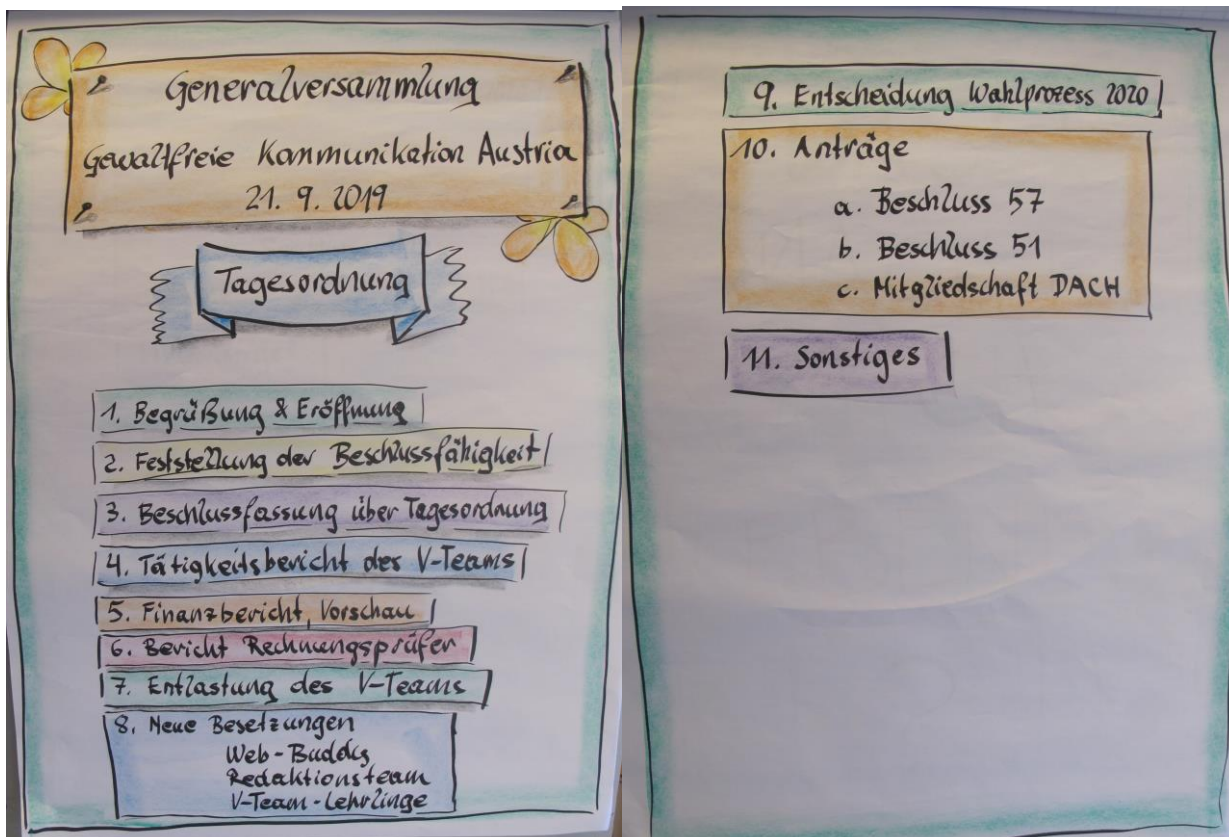 Generalversammlung
Gewaltfreie Kommunikation Austria
21. 9. 2019
Tagesordnung
1. Begrüßung & Eröffnung
2. Feststellung der Beschlussfähigkeit
3. Beschlussfassung über Tagesordnung
4. Tätigkeitsbericht des V-Teams
5. Finanzbericht, Vorschau
6. Bericht Rechnungsprüfer
7. Entlastung des V-Teams
8. Neue Besetzungen
Web-Buddys
Redaktionsteam
V-Team-Lehrlinge
9. Entscheidung Wahlprozess 2020
10. Anträge
a. Beschluss 57
b. Beschluss 51
c. Mitgliedschaft DACH
11. Sonstiges